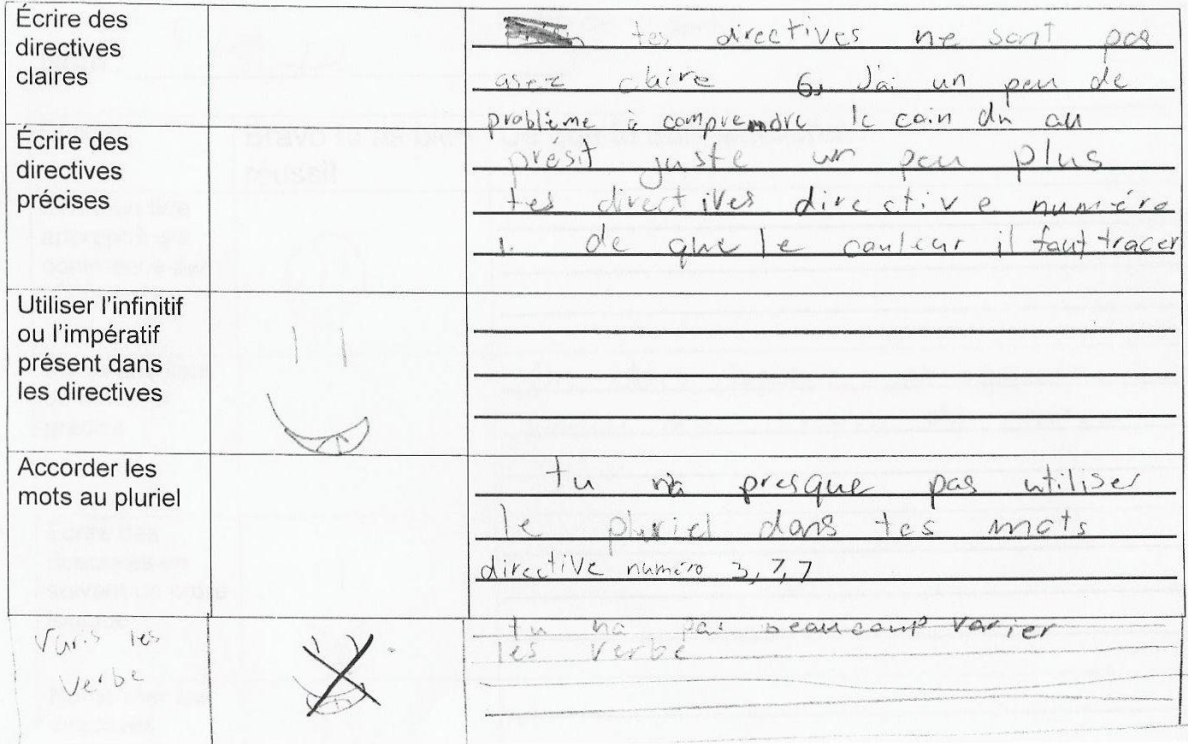 Écrire des
directives
claires
tes directives ne sont pas
asez claire 6, J'ai un peu de
problème à comprendre le coin du au
Écrire des
directives
précises
présit juste un peu plus
tes directives directive numére
1. de que le couleur il faut tracer
Utiliser l'infinitif
ou l'impératif
présent dans
les directives
Accorder les
mots au pluriel
tu na presque pas utiliser
le pluriel dans tes mots
directive numéro 3,7,7
Varis les
verbe
tu na pas beaucoup varier
les verbe